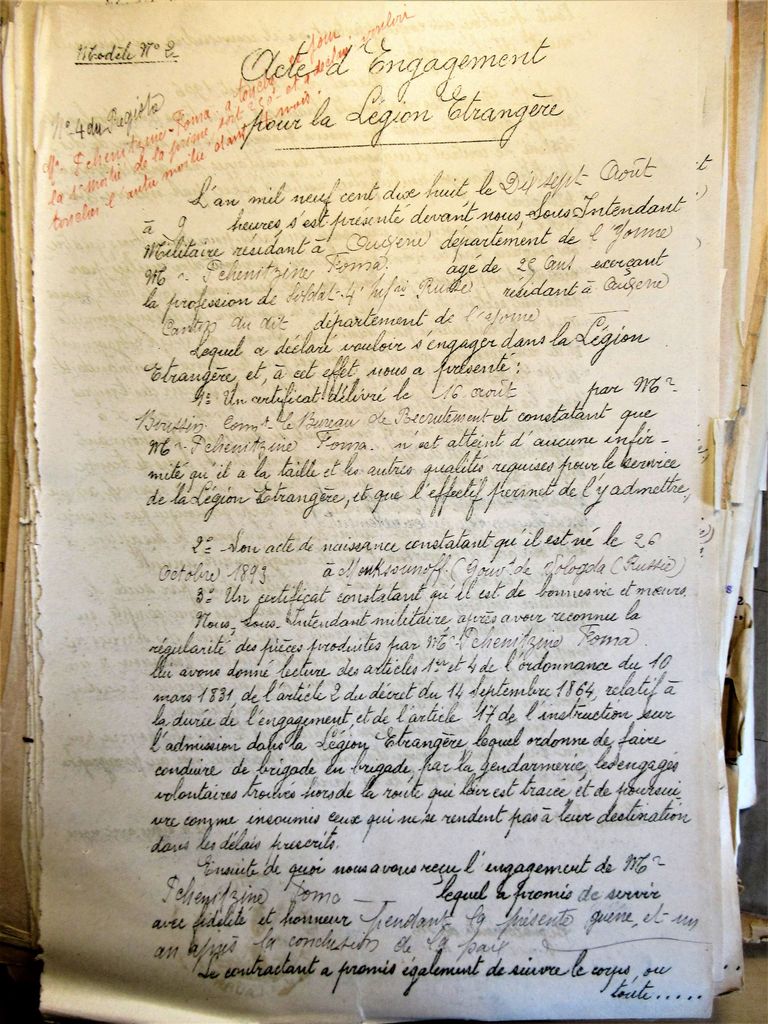 Modèle N° 2
Acte d'Engagement
pour la Légion Etrangère
N° 4 du Registre
Mr. Pchenitzine Foma a touché ce jour
la 1e moitié de la prime soit 250f et a déclaré vouloir
toucher l'autre moitié dans mois.
L'an mil neuf cent dix huit le Dix sept Août
à 9 heures, s'est présenté devant nous, Sous Intendant
Militaire résidant à département de l'Yonne
Mr Pchenitzine Foma. agé de 25 ans exerçant
la profession de Soldat 4e Infie Russe résidant à
Canton du dit département de l'Yonne
Lequel a déclaré vouloir s'engager dans la Légion
Etrangère et, à cet effet, nous a présenté :
1° Un certificat délivré le 16 août par Mr
Comt le Bureau de Recrutement et constatant que
Mr Pchenitzine Foma. n'est atteint d'aucune infir-
mité qu'il a la taille et les autres qualités requises pour le service
de la Légion Etrangère, et que l'effectif permet de l'y admettre,
2° Son acte de naissance constatant qu'il est né le 26
Octobre 1893 à (Gouvt de Vologda (Russie)
3° Un certificat constatant qu'il est de bonnes vie et mœurs.
Nous, Sous-Intendant militaire après avoir reconnu la
régularité des pièces produites par Mr Pchenitzine Foma
lui avons donné lecture des articles 1er et 4 de l'ordonnance du 10
mars 1831 de l'article 2 du décret du 14 Septembre 1864, relatif à
la durée de l'engagement et de l'article 17 de l'instruction sur
l'admission dans la Légion Etrangère lequel ordonne de faire
conduire de brigade en brigade, par la gendarmerie, les engagés
volontaires trouvés hors de la route qui leur est tracée et de poursui
vre comme insoumis ceux qui ne se rendent pas à leur destination
dans les délais prescrits.
Ensuite de quoi nous avons reçu l'engagement de Mr
Pchenitzine Foma — lequel a promis de servir
avec fidélité et honneur pendant la présente guerre, et un
an après la conclusion de la paix
Le contractant a promis également de suivre le corps, ou
toute.....